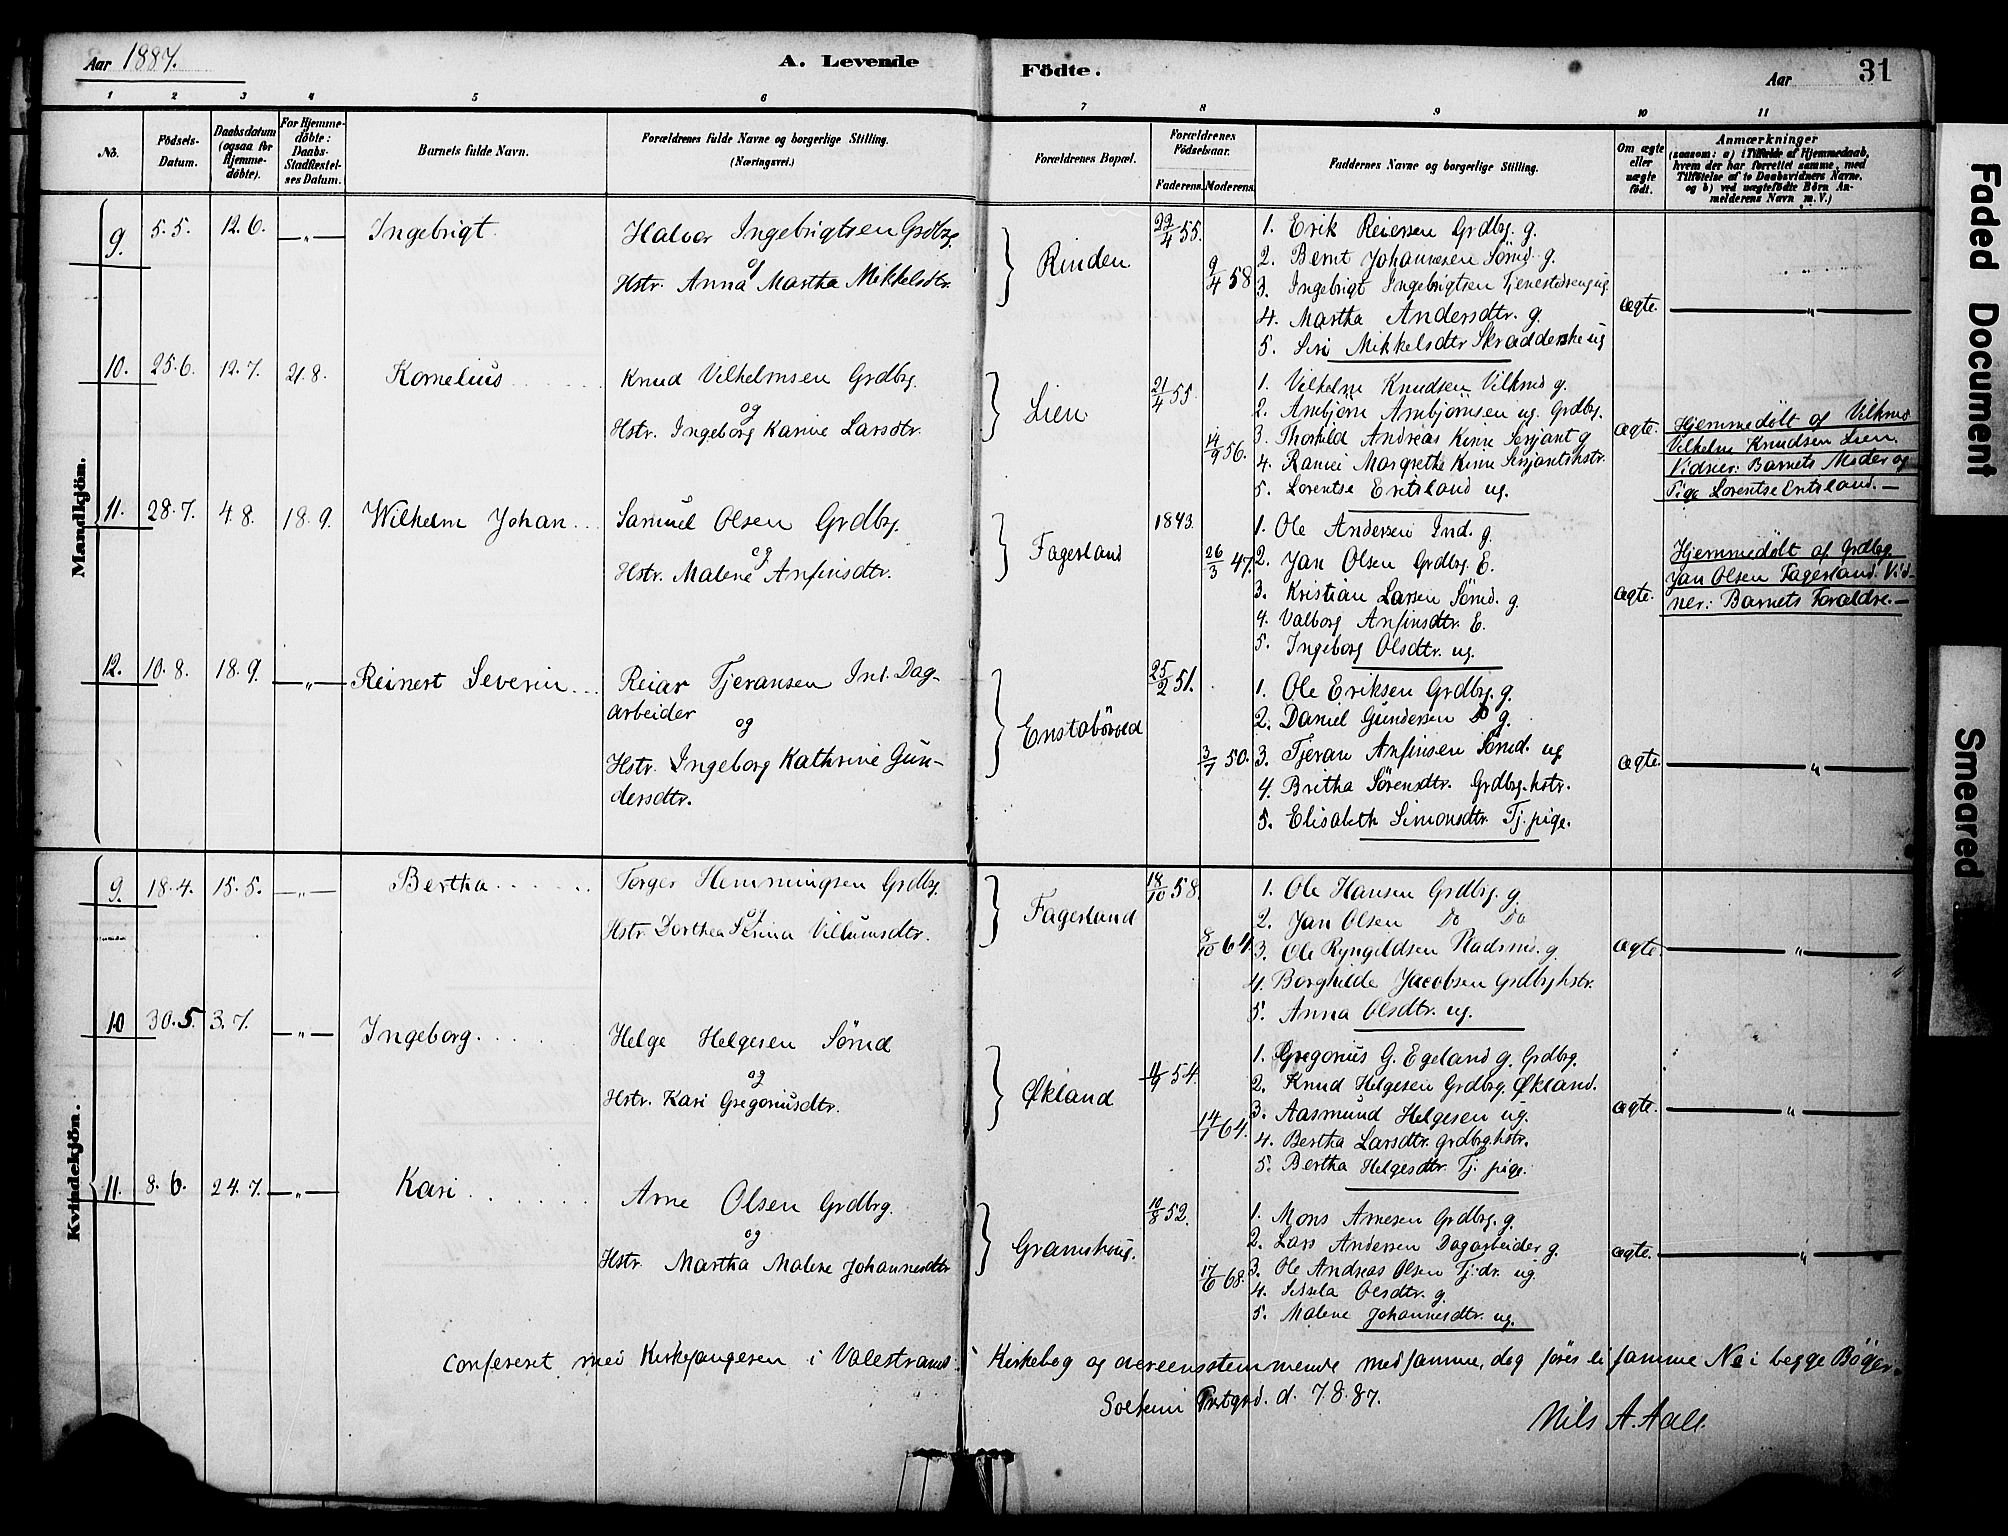 Aar 1887.
A. Levende Födte.
Aar 31
1 2 3 4 5 6 7 8 9 10 11
No.
Födsels-Datum.
Daabsdatum (ogsaa for Hjemme-döbte).
For Hjemme-döbte: Daabs-Stadfæstel-ses Datum.
Barnets fulde Navn.
Forældrenes fulde Navne og borgerlige Stilling. (Næringsvei.)
Forældrenes Bopæl.
Forældrenes Födselsaar.
Faderens. Moderens.
Faddernes Navne og borgerlige Stilling.
Om ægte eller uægte födt.
Anmærkninger
(saasom: a) i Tilfælde af Hjemmedaab,
hvem der har forrettet samme, med
Tilföielse af to Daabsvidners Navne,
og b) ved uægtefödte Börn An-
melderens Navn m. V.)
Mandkjön.
9. 5.5. 12.6. —„— Ingebrigt.
Halvor Ingebrigtsen Grdbrg.
og
Hstr. Anna Martha Mikkelsdtr.
Rinden
22/4 55.
9/4 58
1. Erik Reiersen Grdbrg. g.
2. Bernt Johannesen Sömd. g.
3. Ingebrigt Ingebrigtsen Tjenestedreng ug.
4. Martha Andersdtr. g.
5. Siri Mikkelsdtr Skrædderske ug
ægte. — „ —
10. 25.6. 12.7. 21.8. Kornelius
Knud Vilhelmsen Grdbrg.
og
Hstr. Ingeborg Karine Larsdtr.
Lien
21/4 55.
14/9 56.
1. Vilhelm Knudsen Vilkmd g.
2. Ambjörn Ambjörnsen ug. Grdbrg.
3. Thorkild Andreas Kinne Serjant g
4. Ranvei Margrethe Kinne Serjantshstr.
5. Lorentse Eritsland ug.
ægte.
Hjemmedöbt af Vilkmd
Vilhelm Knudsen Lien.
Vidner: Barnets Moder og
Pige Lorentse Eritsland. —
11. 28.7. 4.8. 18.9. Wilhelm Johan
Samuel Olsen Grdbrg.
og
Hstr. Malene Anfinsdtr.
Fagerland
1843.
26/3 47.
1. Ole Andersen Ind. g.
2. Jan Olsen Grdbrg. E.
3. Kristian Larsen Sömd. g.
4. Valborg Anfinsdtr. E.
5. Ingeborg Olsdtr. ug.
ægte.
Hjemmedöbt af Grdbrg.
Jan Olsen Fagerland. Vid-
ner: Barnets Forældre. —
12. 10.8. 18.9. —„— Reinert Severin
Reiar Tjeransen Ind. Dag-
arbeider
og
Hstr. Ingeborg Kathrine Gun-
dersdtr.
25/2 51.
3/7 50.
1. Ole Eriksen Grdbrg. g.
2. Daniel Gundersen Do g.
3. Tjeran Anfinsen Sömd. ug
4. Britha Sörensdtr. Grdbrg. hstr.
5. Elisabeth Simonsdtr. Tj. pige.
ægte. — „ —
Kvindekjön.
9. 18.4. 15.5. —„— Bertha
Torger Hemmingsen Grdbrg.
og
Hstr. Dorthea Serina Villumsdtr.
Fagerland
18/10 58.
8/10 64.
1. Ole Hansen Grdbrg. g.
2. Jan Olsen Do Do
3. Ole Ryngildsen Pladsmd. g.
4. Borghilde Jacobsen Grdbrghstr.
5. Anna Olsdtr. ug.
ægte. — „ —
10 30.5. 3.7. —„— Ingeborg.
Helge Helgesen Sömd
og
Hstr. Kari Gregoriusdtr.
Økland
54.
14/7 64.
1. Gregorius G. Egeland g. Grdbrg.
2. Knud Helgesen Grdbrg. Økland.
3. Aasmund Helgesen ug.
4. Bertha Larsdtr. grdbrghstr.
5. Bertha Helgesdtr. Tj. pige.
ægte. — „ —
11. 8.6. 24.7. —„— Kari
Arne Olsen Grdbrg.
og
Hstr. Martha Malene Johannesdtr
Gramshoug.
10/8 52.
17/6 68.
1. Mons Arnesen Grdbrg. g.
2. Lars Andersen Dagarbeider g.
3. Ole Andreas Olsen Tj. dr. ug.
4. Sissela Olsdtr. g.
5. Malene Johannesdtr ug.
ægte. — „ —
Confereret med Kirkesangeren i Valestrands Kirkebog og overeensstemmende med samme, dog föres ei samme No i begge Böger.
Solheim Prstgrd. d. 7.8.87.
Nils A. Aall.
Faded Document
Smeared